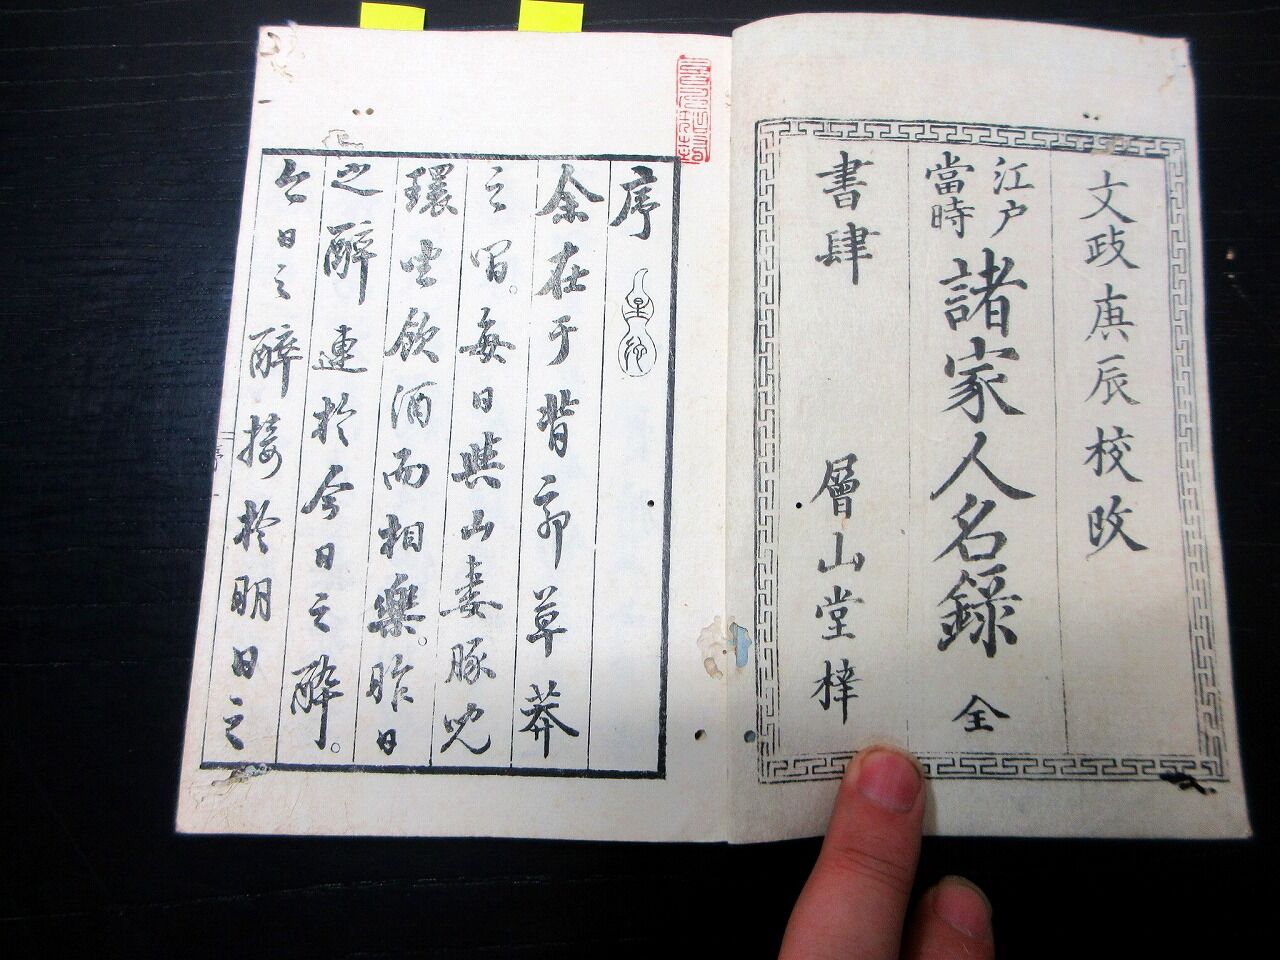 文政庚辰校改
江戸
當時
諸家人名録 全
書肆 層山堂梓
序
余在于背郭草莽
之間。每日與山妻豚兒
環坐飲酒而相樂。昨日
之醉連於今日之醉。
今日之醉接於明日之